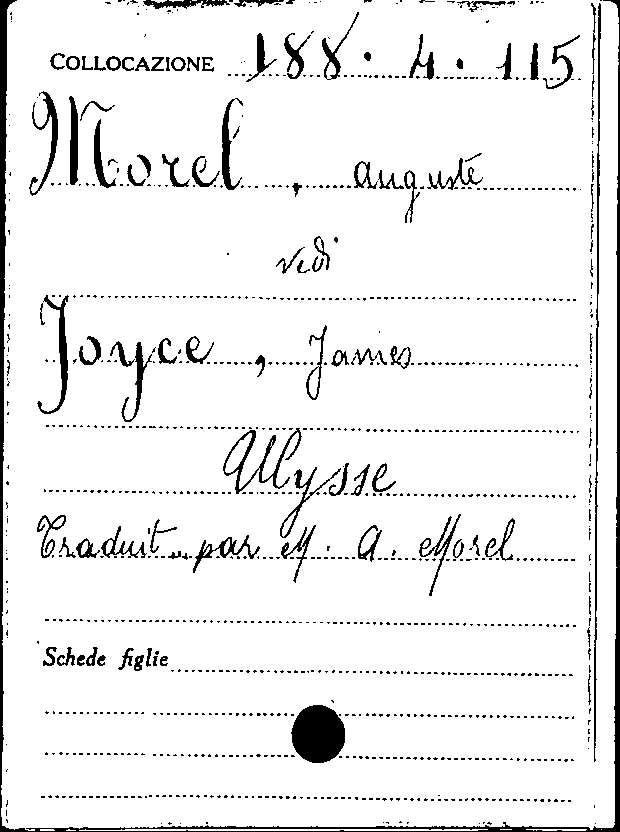 COLLOCAZIONE 188. 4. 115
Morel, Auguste
vedi
Joyce, James
Ulysse
Traduit par M. A. Morel
Schede figlie